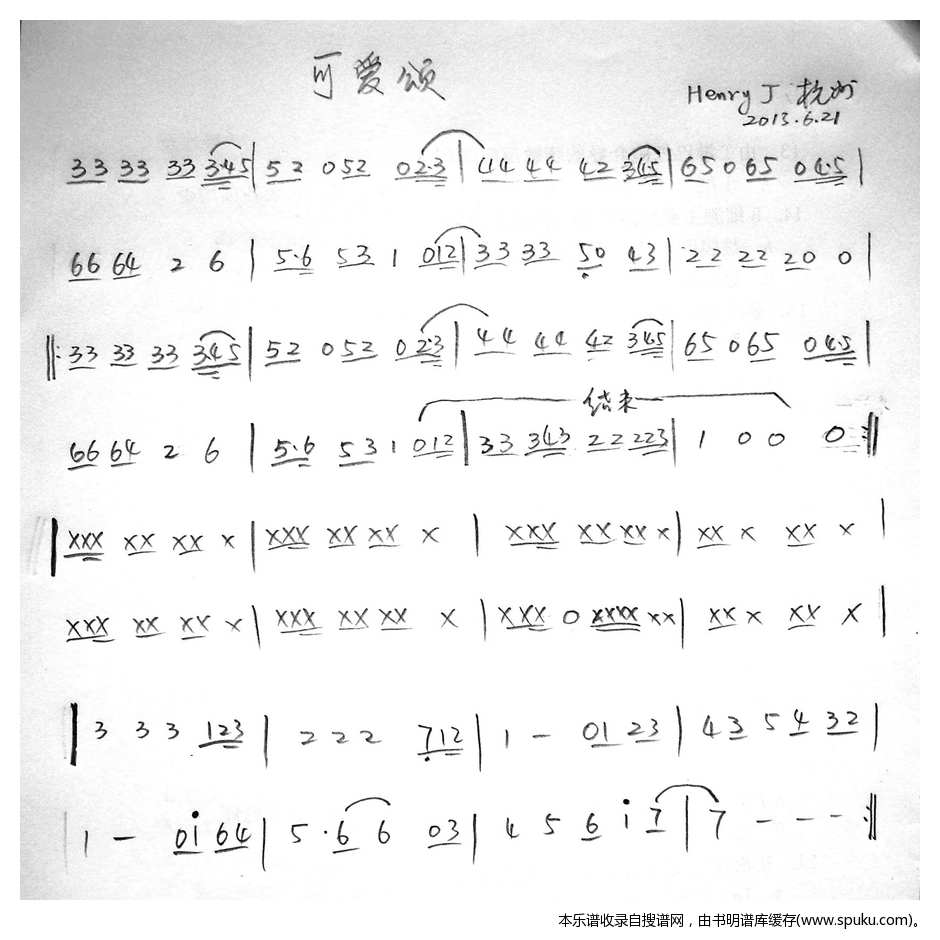 可爱颂
Henry J 杭州
2013.6.21
33 33 33 3·45 | 52 052 02·3 | 44 44 42 345 | 65 0 65 04·5 |
66 64 2 6 | 5·6 53 1 012 | 33 33 50 43 | 22 22 20 0 |
‖: 33 33 33 345 | 52 052 02·3 | 44 44 42 345 | 65 0 65 04·5 |
结束
66 64 2 6 | 5·6 53 1 012 | 33 343 22 223 | 1 0 0 0 :‖
| xxx xx xx x | xxx xx xx x | xxx xx xx x | xx x xx x |
xxx xx xx x | xxx xx xx x | xxx 0 xxxx xx | xx x xx x |
| 3 3 3 123 | 2 2 2 712 | 1 - 01 23 | 4 3 5 4 32 |
| 1 - 0i 64 | 5 · 6 6 03 | 4 5 6 i 7 | 7 - - - :‖
本乐谱收录自搜谱网，由书明谱库缓存(www.spuku.com)。